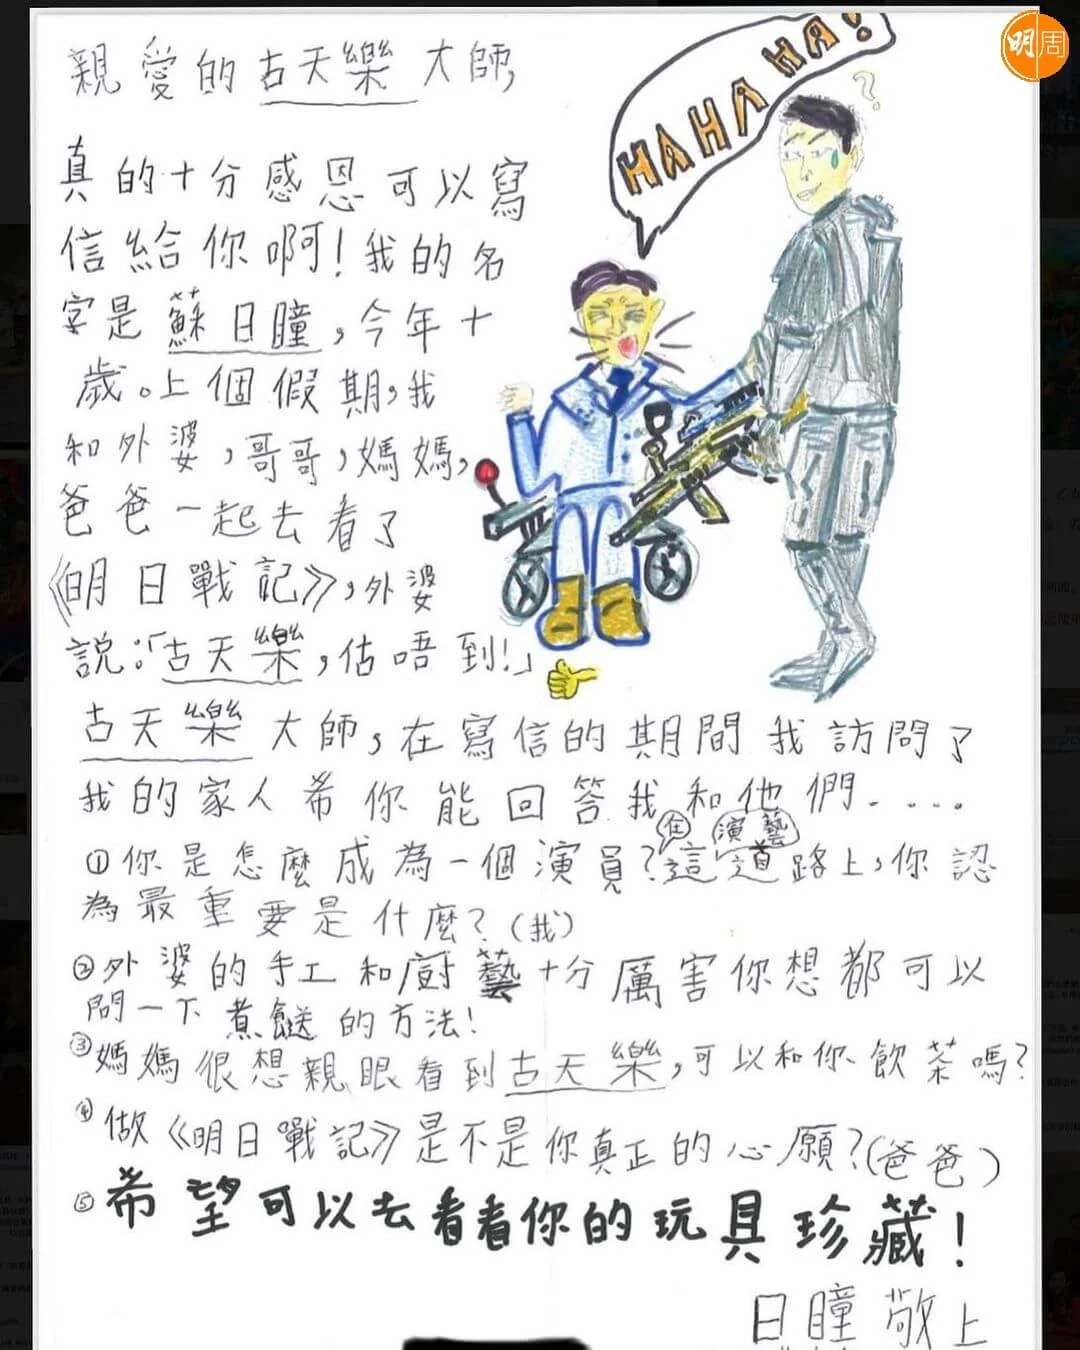 明周
親愛的古天樂大師,
HAHAHA HA!
?
真的十分感恩可以寫
信給你啊!我的名
字是蘇日瞳,今年十
歲。上個假期,我
和外婆,哥哥,媽媽,
爸爸一起去看了
《明日戰記》,外婆
説:「古天樂,估唔到!」
古天樂大師,在寫信的期間我訪問了
我的家人希你能回答我和他們....
①你是怎麼成為一個演員?在這演藝道路上,你認
為最重要是什麼?(我)
②外婆的手工和廚藝十分厲害你想都可以
問一下煮餸的方法!
③媽媽很想親眼看到古天樂,可以和你飲茶嗎?
④做《明日戰記》是不是你真正的心願?(爸爸)
⑤希望可以去看看你的玩具珍藏!
日瞳敬上